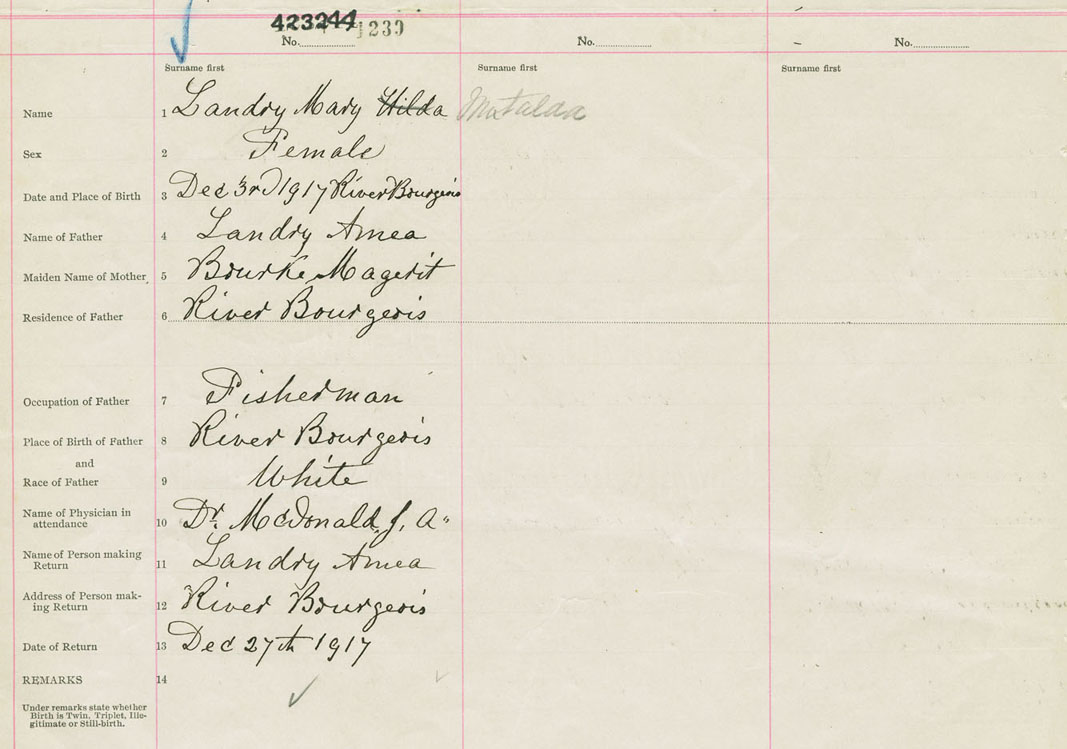 423244 1239
No. No. No.
Surname first Surname first Surname first
Name 1 Landry Mary Hilda Matalda
Sex 2 Female
Date and Place of Birth 3 Dec 3rd 1917 River Bourgeois
Name of Father 4 Landry Amea
Maiden Name of Mother 5 Bourke Magerit
Residence of Father 6 River Bourgeois
Occupation of Father 7 Fisherman
Place of Birth of Father 8 River Bourgeois
and
Race of Father 9 White
Name of Physician in
attendance 10 Dr. McDonald J. A.
Name of Person making
Return 11 Landry Amea
Address of Person mak-
ing Return 12 River Bourgeois
Date of Return 13 Dec 27th 1917
REMARKS 14
Under remarks state whether
Birth is Twin, Triplet, Ille-
gitimate or Still-birth.